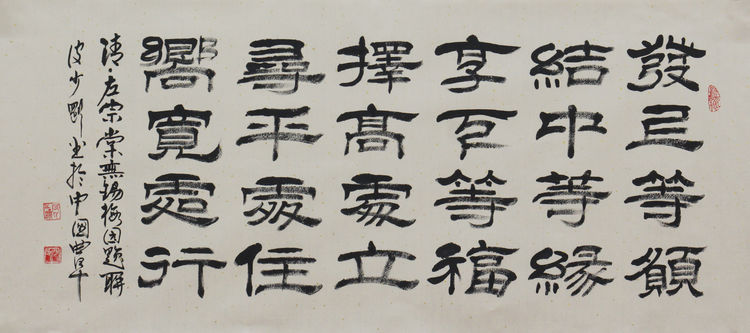 發上等願
結中等緣
享下等福
擇高處立
尋平處住
嚮寬處行
清·左宗棠無錫梅园題聯
皮少剛书於中国曲阜